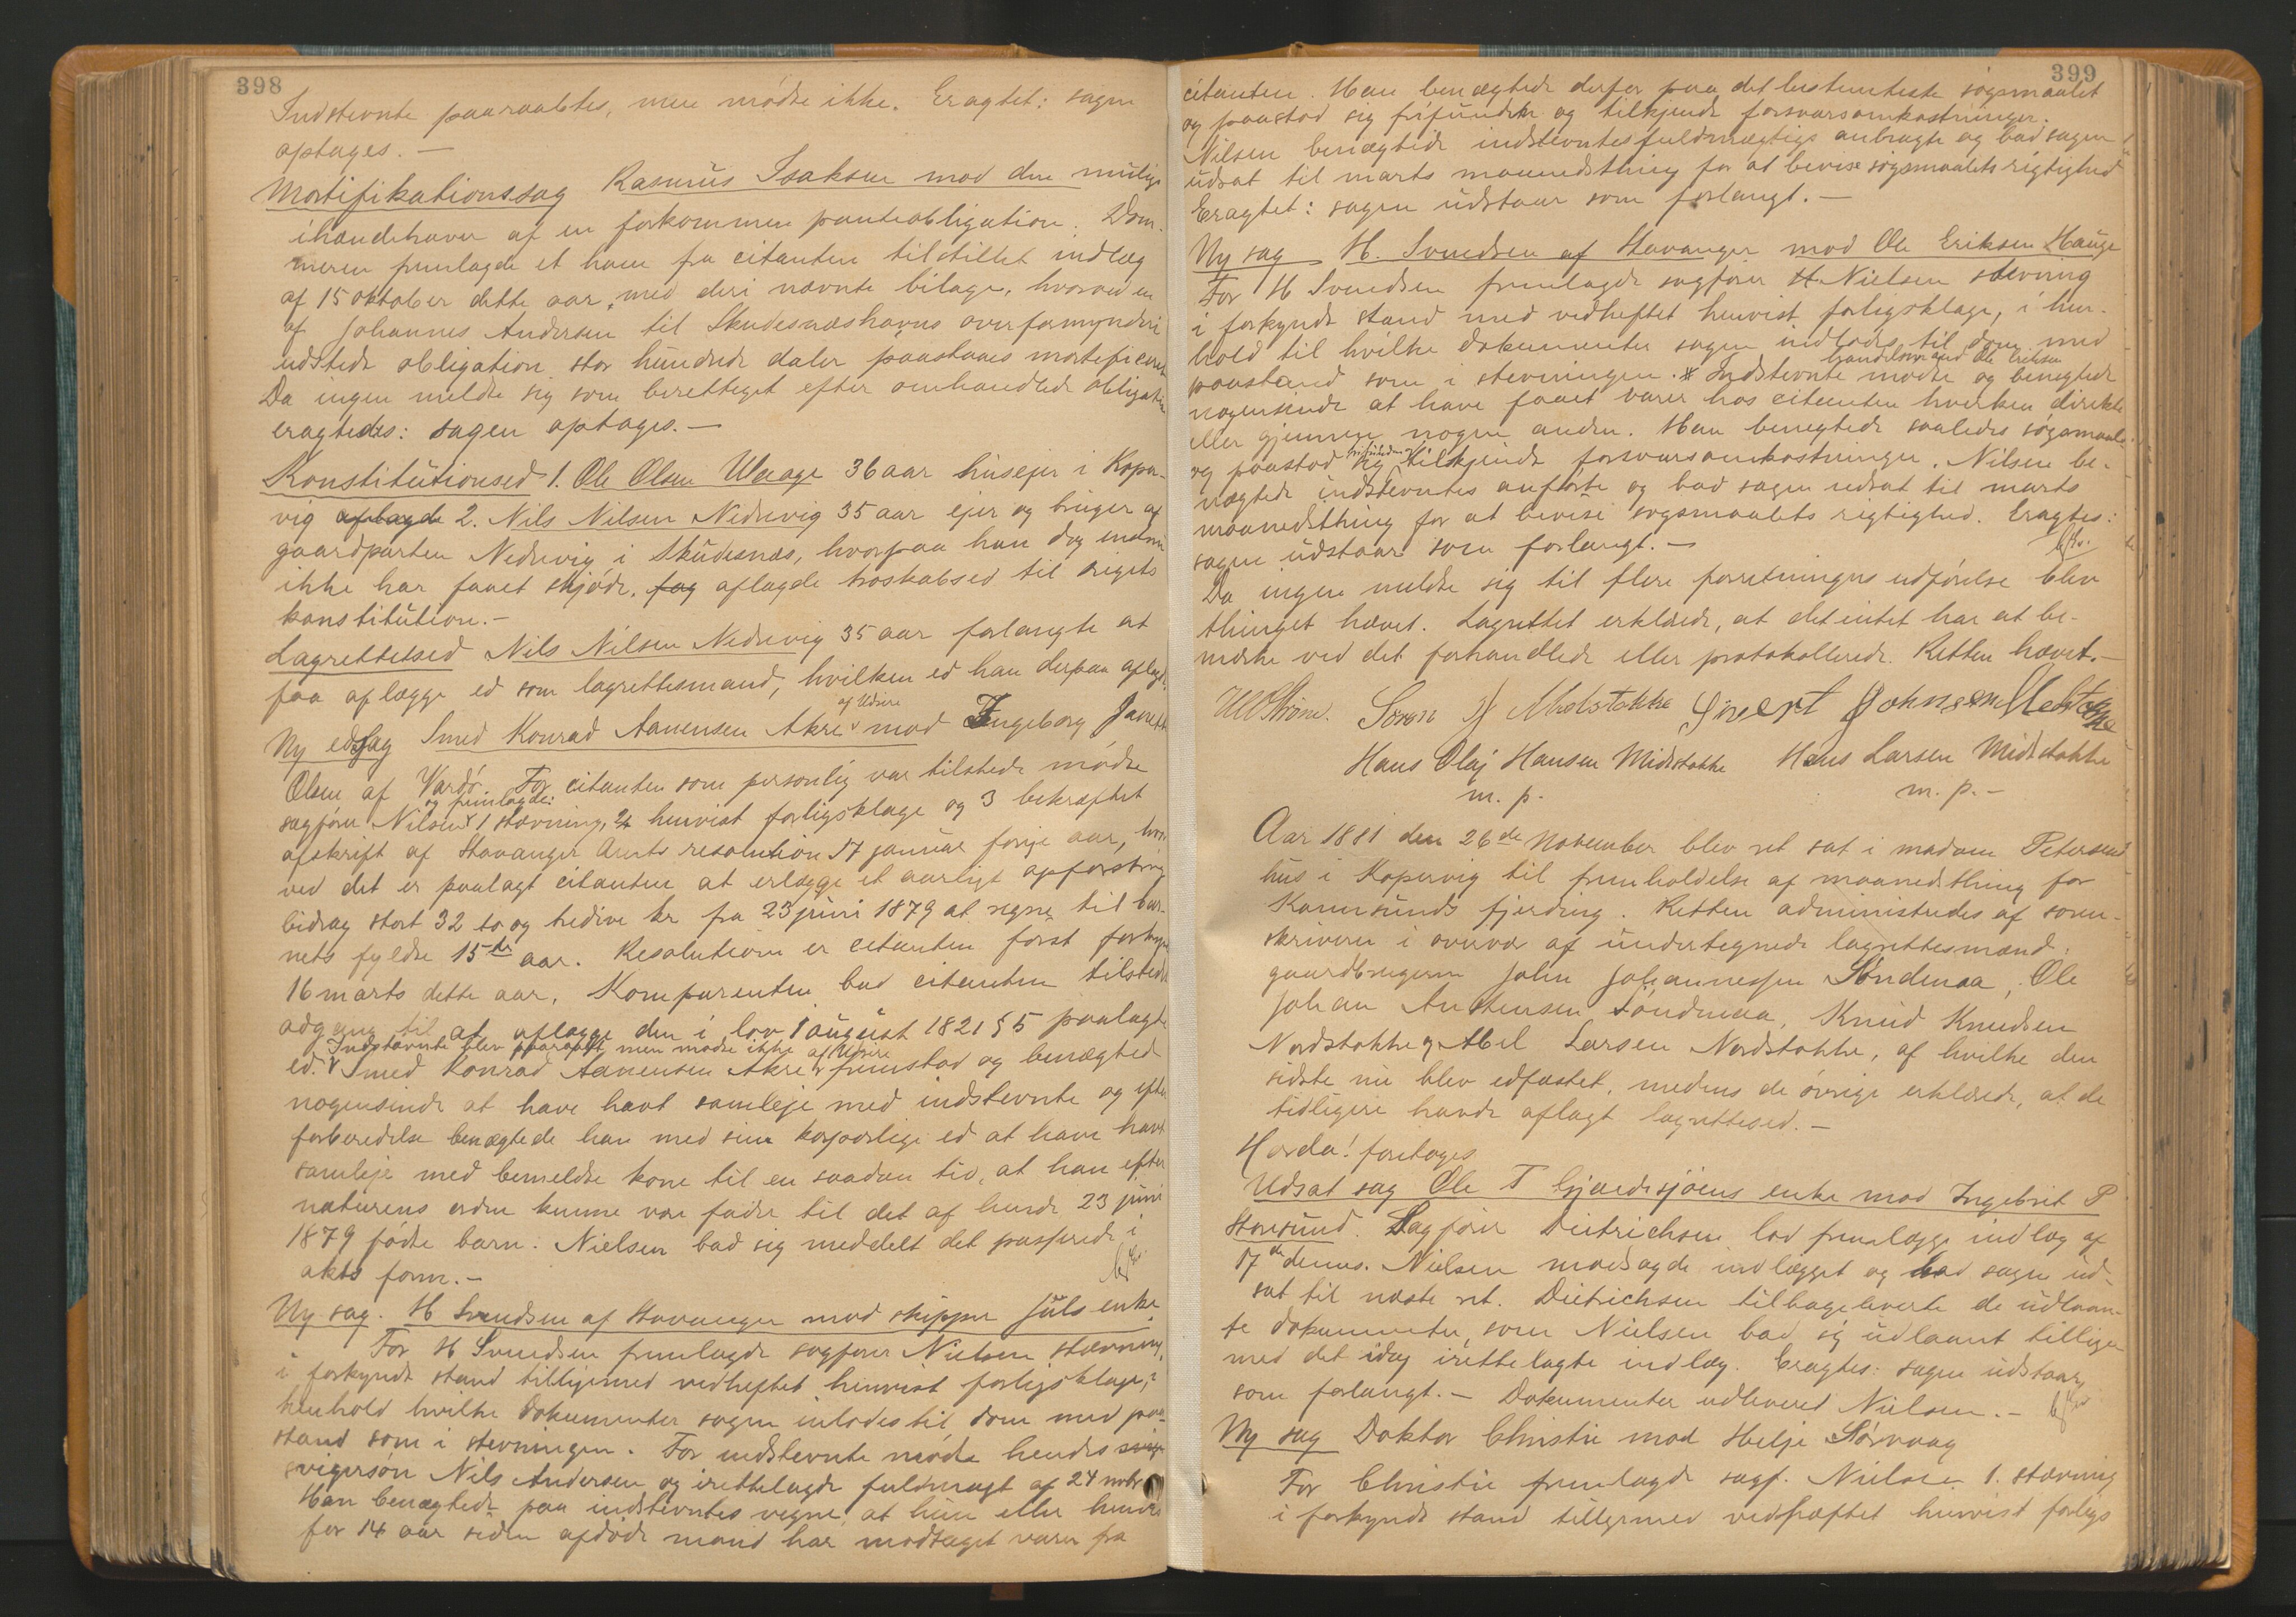 398
Indstevnte paaraabtes, men mødte ikke. Eragtet: sagen
optages. —
Mortifikationssag Rasmus Isaksen mod den mulige
ihændehaver af en forkommen panteobligation. Dom-
meren fremlagde et ham fra citanten tilstillet indlæg
af 15 oktober dette aar, med deri nævnte bilage, hvorved en
af Johannes Andersen til Skudesnæshavns overformynderi
udstedt obligation stor hundrede daler paastaaes mortificeret
Da ingen meldte sig som berettiget efter omhandlede obligation
eragtedes: sagen optages. —
Konstitutionsed 1. Ole Olsen Waage 36 aar husejer i Kopar-
vig aflagde 2. Nils Nilsen Nedrevig 35 aar ejer og bruger af
gaardparten Nedrevig i Skudesnæs, hvorpaa han dog endnu
ikke har faaet skjøde, aflagde troskabsed til rigets
konstitution. —
Lagrettesed Nils Nilsen Nedrevig 35 aar forlangte at
faa aflægge ed som lagrettesmand, hvilken ed han derpaa aflagde.
af Utsire
Ny edssag Smed Konrad Aanensen Akre mod Ingeborg Janette
Olsen af Vardø. For citanten som personlig var tilstede mødte
og fremlagde:
sagfører Nilsen 1 stævning, 2 henvist forligsklage og 3 bekræftet
afskrift af Stavanger Amts resolution 17 januar forrige aar, hvor-
ved det er paalagt citanten at erlægge et aarligt opfostrings
bidrag stort 32 to og tredive kr fra 23 juni 1879 at regne til bar-
nets fyldte 15de aar. Resolutionen er citanten først forkyndt
16 marts dette aar. Komparenten bad citanten tilstedt
adgang til at aflægge den i lov 1 august 1821 § 5 paalagte
Indstævnte blev paaraabt, men mødte ikke af Utsire
ed. Smed Konrad Aanensen Akre fremstod og benægted
nogensinde at have havt samleje med indstevnte og efter
forberedelse benægtede han med sin korporlige ed at have havt
samleje med bemeldte kone til en saadan tid, at han efter
naturens orden kunne være fader til det af hende 23 juni
1879 fødte barn. Nielsen bad sig meddelt det passerede i
akts form. —
Ny sag. H Svendsen af Stavanger mod skipper Juls enke.
For H Svendsen fremlagde sagfører Nielsen stævning,
i forkyndt stand tilligemed vedheftet henvist forligsklage, i
henhold hvilke dokumenter sagen inlodes til dom med paa-
stand som i stevningen. For indstevnte mødte hendes
svigersøn Nils Andersen og irettelagde fuldmagt af 24 novbr
Han benægtede paa indstevntes vegne, at hun eller hendes
for 14 aar siden afdøde mand har modtaget varer fra
399
citanten. Han benægtede derfor paa det bestemteste søgsmaalet
og paastod sig frifunden og tilkjendt forsvarsomkostninger.
Nilsen benægtede indstevntes fuldmægtigs anbragte og bad sagen
udsat til marts maanedsthing for at bevise søgsmaalets rigtighed
Eragtet: sagen udstaar som forlangt. —
Ny sag H. Svendsen af Stavanger mod Ole Eriksen Hauge
For H Svendsen fremlagde sagfører H. Nielsen stevning
i forkyndt stand med vedheftet henvist forligsklage, i hen-
hold til hvilke dokumenter sagen indlodes til dom med
handelsmand Ole Eriksen
paastand som i stevningen. Indstevnte mødte og benegtede
nogensinde at have faaet varer hos citanten hverken direkte
eller gjennem nogen anden. Han benegtede saaledes søgsmaalet
frifunden
og paastod sig tilkjendt forsvarsomkostninger. Nilsen be-
nægtede indstevntes anførte og bad sagen udsat til marts
maanedsthing for at bevise søgsmaalets rigtighed. Eragtes:
sagen udstaar som forlangt. —
Da ingen meldte sig til flere forretningers udførelse blev
thinget hævet. Lagrettet erklærede, at det intet har at be-
mærke ved det forhandlede eller protokollerede. Retten hævet. —
Soren Midstokke Sivert Johnsen
Hans Olaj Hansen Midtstokke Hans Larsen Midtstokke
m. p. m. p. —
Aar 1881 den 26de November blev ret sat i madam Petersens
hus i Kopervig til fremholdelse af maanedsthing for
Karmsunds fjerding. Retten administredes af soren-
skriveren i overvær af undertegnede lagrettesmænd:
gaardbrugerne John Johannessen Søndenaa, Ole
Johan Austensen Søndenaa, Knud Knudsen
Nordstokke og Abel Larsen Nordstokke, af hvilke den
sidste nu blev edfæstet, medens de øvrige erklærede, at de
tidligere havde aflagt lagrettesed. —
Horda! foretages
Udsat sag Ole T Gjærdesjøens enke mod Ingebret P
Storesund. Sagfører Dietrichson lod fremlægge indlæg af
17de dennes. Nielsen modsagde indlægget og bad sagen ud-
sat til næste ret. Dietrichsen tilbageleverte de udlaan-
te dokumenter, som Nielsen bad sig udlaant tillige-
med det idag irettelagte indlæg. Eragtes: sagen udstaar
som forlangt. — Dokumenter udleveret Nielsen. —
Ny sag Doktor Christie mod Helje Sørvaag
For Christie fremlagde sagf. Nielsen 1. stævning
i forkyndt stand tilligemed vedhæftet henvist forligs